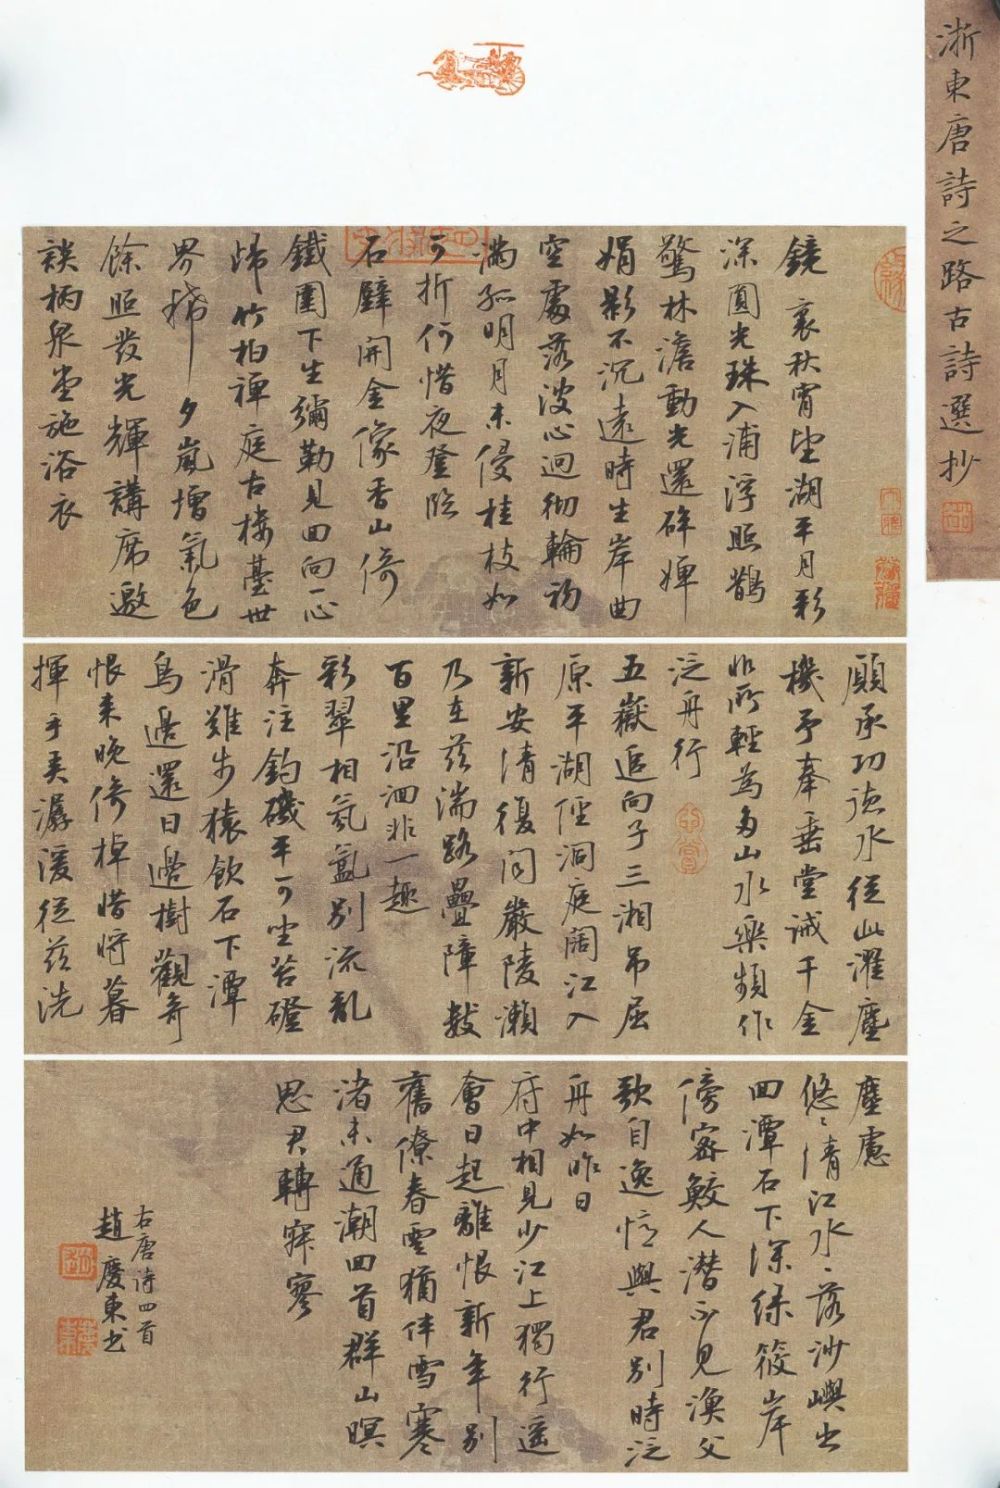 浙東唐詩之路古詩選抄
鏡裏秋宵望湖平月彩
深圓光珠入浦浮照鵲
驚林澹動光還碎嬋
娟影不沉遠時生岸曲
空處落波心迥徹輪初
滿孤明月未侵桂枝如
可折何惜夜登臨
石壁開金像香山倚
鐵圍下生彌勒見回向一心
歸竹柏禪庭古樓臺世
界稀夕嵐增氣色
餘照發光輝講席邀
談柄泉堂施浴衣
願承功德水從此濯塵
機予奉垂堂誡千金
非所輕為多山水樂頻作
泛舟行
五嶽追向子三湘吊屈
原平湖徑洞庭闊江入
新安清復聞嚴陵瀨
乃在茲湍路疊障數
百里沿洄非一趣
彩翠相氛氳別流亂
奔注釣磯平可坐苔磴
滑難步猿飲石下潭
鳥邊還日邊樹觀奇
恨來晚倚棹惜將暮
揮手弄潺湲從茲洗
塵慮
悠〻清江水〻落沙嶼出
回潭石下深綠筱岸
傍密鮫人潛不見漁父
歌自逸憶與君別時泛
舟如昨日
府中相見少江上獨行遙
會日起離恨新年別
舊僚春雲猶伴雪寒
渚未通潮回首群山暝
思君轉寂寥
右唐詩四首
趙慶東書